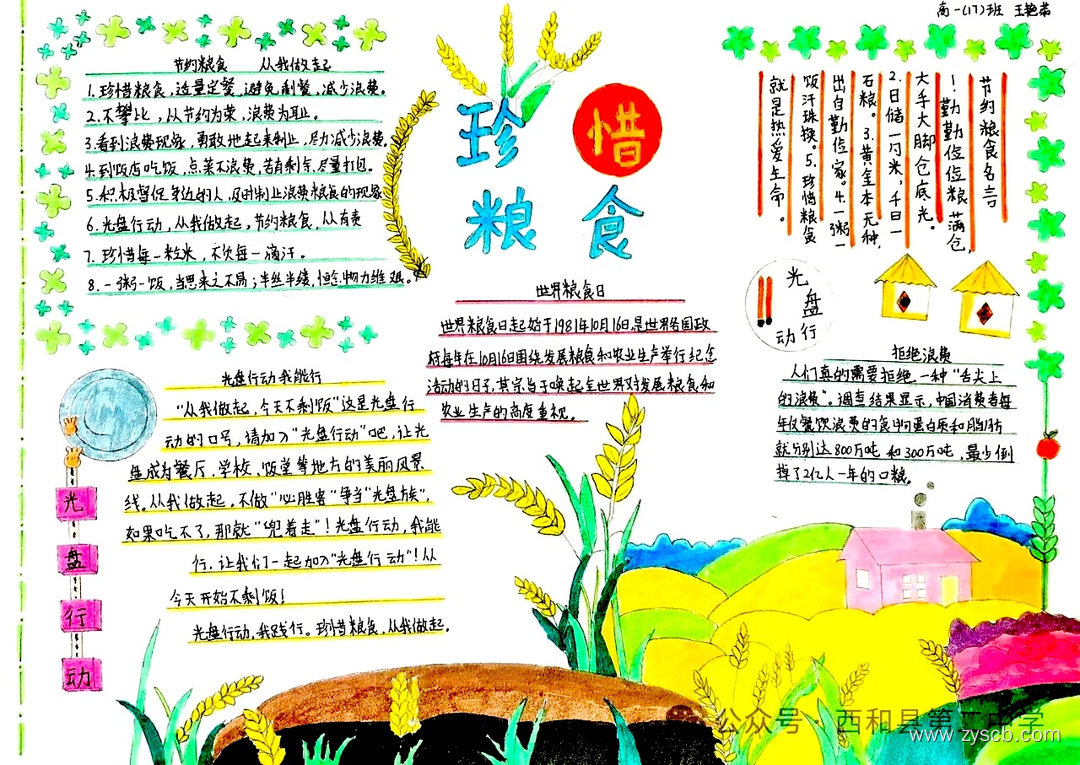 高一(17)班 王艳蓉
珍惜
粮食
节约粮食 从我做起
1.珍惜粮食,适量定餐,避免剩餐,减少浪费。
2.不攀比,从节约为荣,浪费为耻。
3.看到浪费现象,勇敢地起来制止,尽力减少浪费。
4.到饭店吃饭,点菜不浪费,若有剩余,尽量打包。
5.积极督促身边的人,及时制止浪费粮食的现象
6.光盘行动,从我做起,节约粮食,从有责
7.珍惜每一粒米,不欠每一滴汗。
8.一粥一饭,当思来之不易;半丝半缕,恒念物力维艰。
节约粮食名言
!勤勤俭俭粮满仓,
大手大脚仓底光。
2.日储一勺米,千日一
石粮。3.黄金本无种,
出自勤俭家。4.一粥一
饭汗珠换。5.珍惜粮食
就是热爱生命。
世界粮食日
世界粮食日起始于1981年10月16日,是世界各国政
府每年在10月16日围绕发展粮食和农业生产举行纪念
活动的日子,其宗旨于唤起全世界对发展粮食和
农业生产的高度重视。
光盘行动
拒绝浪费
人们真的需要拒绝一种“舌尖上
的浪费”。调查结果显示,中国消费者每
年仅餐饮浪费的食物蛋白质和脂肪
就分别达800万吨和300万吨,最少倒
掉了2亿人一年的口粮。
光盘行动我能行
“从我做起,今天不剩饭”这是光盘行
动的口号,请加入“光盘行动”吧,让光
盘成为餐厅、学校、饭堂等地方的美丽风景
线。从我做起,不做“必胜客”争当“光盘族”,
如果吃不了,那就“兜着走”!光盘行动,我能
行,让我们一起加入“光盘行动”!从
今天开始不剩饭!
光盘行动,我践行。珍惜粮食,从我做起。
光
盘
行
动
公众号·西和县第二中学
www.zyscb.com